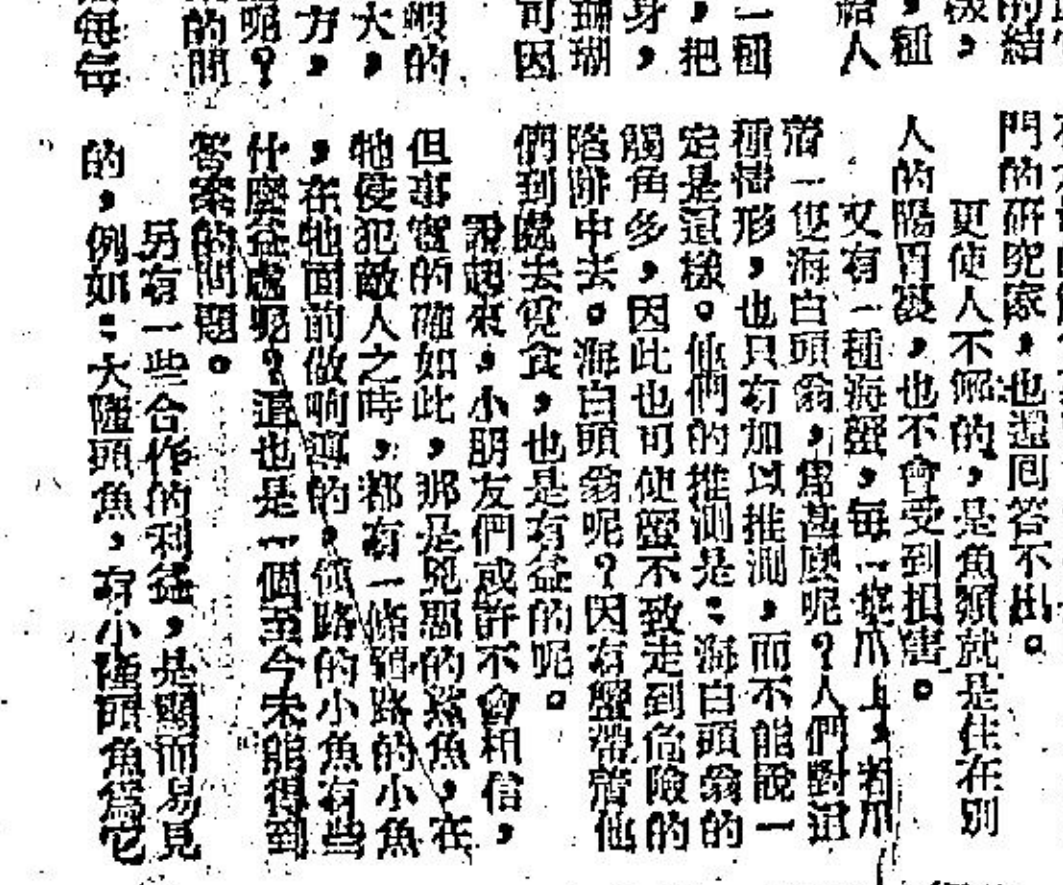 的結
樣，
，種
給人
一種
，把
身，
珊瑚
可因
的
大，
方，
呢？
的問
每每
門的研究家，也還回答不出。
更使人不解的，是魚類就是住在別
人的腸胃裏，也不會受到損害。
又有一種海蟹，每一隻爪上，者爪
着一隻海白頭翁，爲甚麼呢？人們對這
種情形，也只有加以推測，而不能說一
定是這樣。他們的推測是：海白頭翁的
觸角多，因此也可使蟹不致走到危險的
陷阱中去。海白頭翁呢？因有蟹帶着他
們到處去覓食，也是有益的呢。
說起來，小朋友們或許不會相信，
但事實的確如此，那是兇惡的鯊魚，在
牠侵犯敵人之時，都有一條領路的小魚
，在牠面前做嚮導的，領路的小魚有些
什麼益處呢？這也是一個至今未能得到
答案的問題。
另有一些合作的利益，是顯而易見
的，例如：大隆頭魚，有小隆頭魚爲它